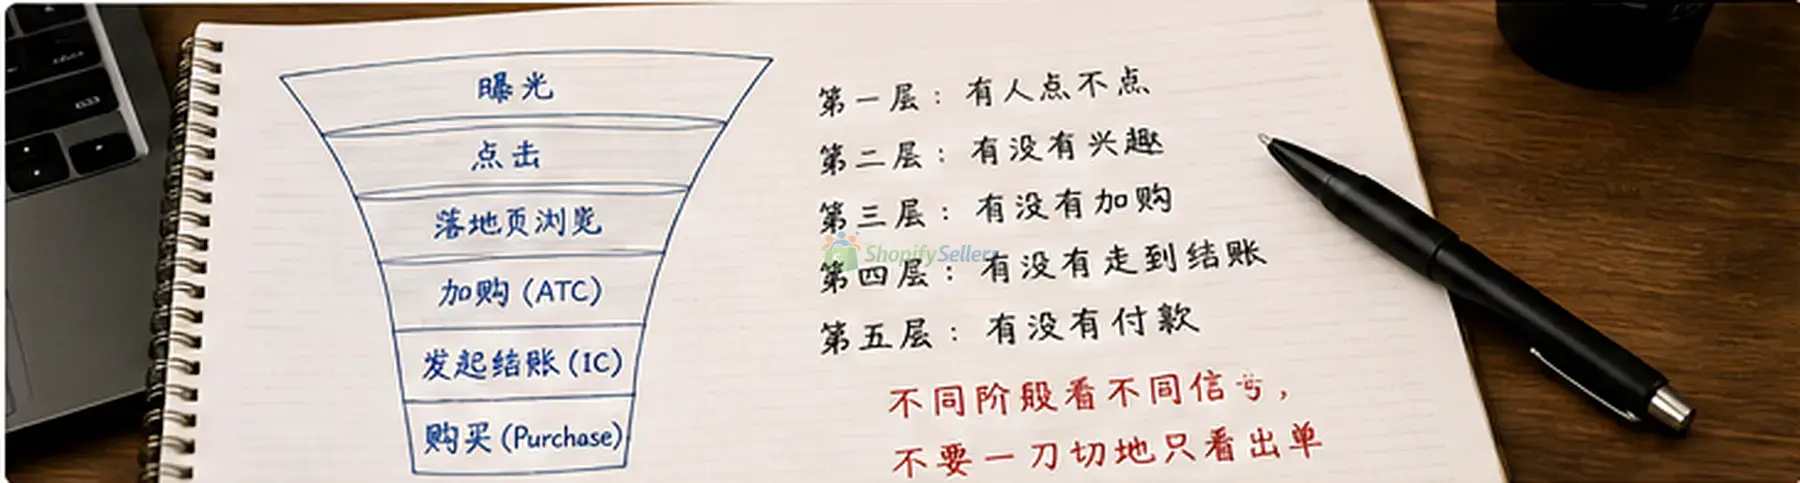 曝光
点击
落地页浏览
加购 (ATC)
发起结账 (IC)
购买 (Purchase)
第一层：有人点不点
第二层：有没有兴趣
第三层：有没有加购
第四层：有没有走到结账
第五层：有没有付款
不同阶段看不同信号，
不要一刀切地只看出单
ShopifySellers